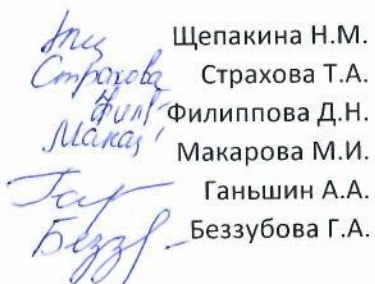 Щепакина Н.М.
Страхова Страхова Т.А.
Филиппова Д.Н.
Макарова М.И.
Ганьшин А.А.
Беззубова Г.А.